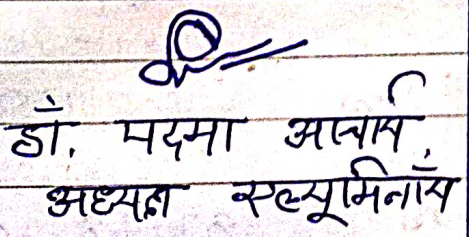 डॉ. पदमा आचार्य,
अध्यक्ष एल्यूमिनाँय